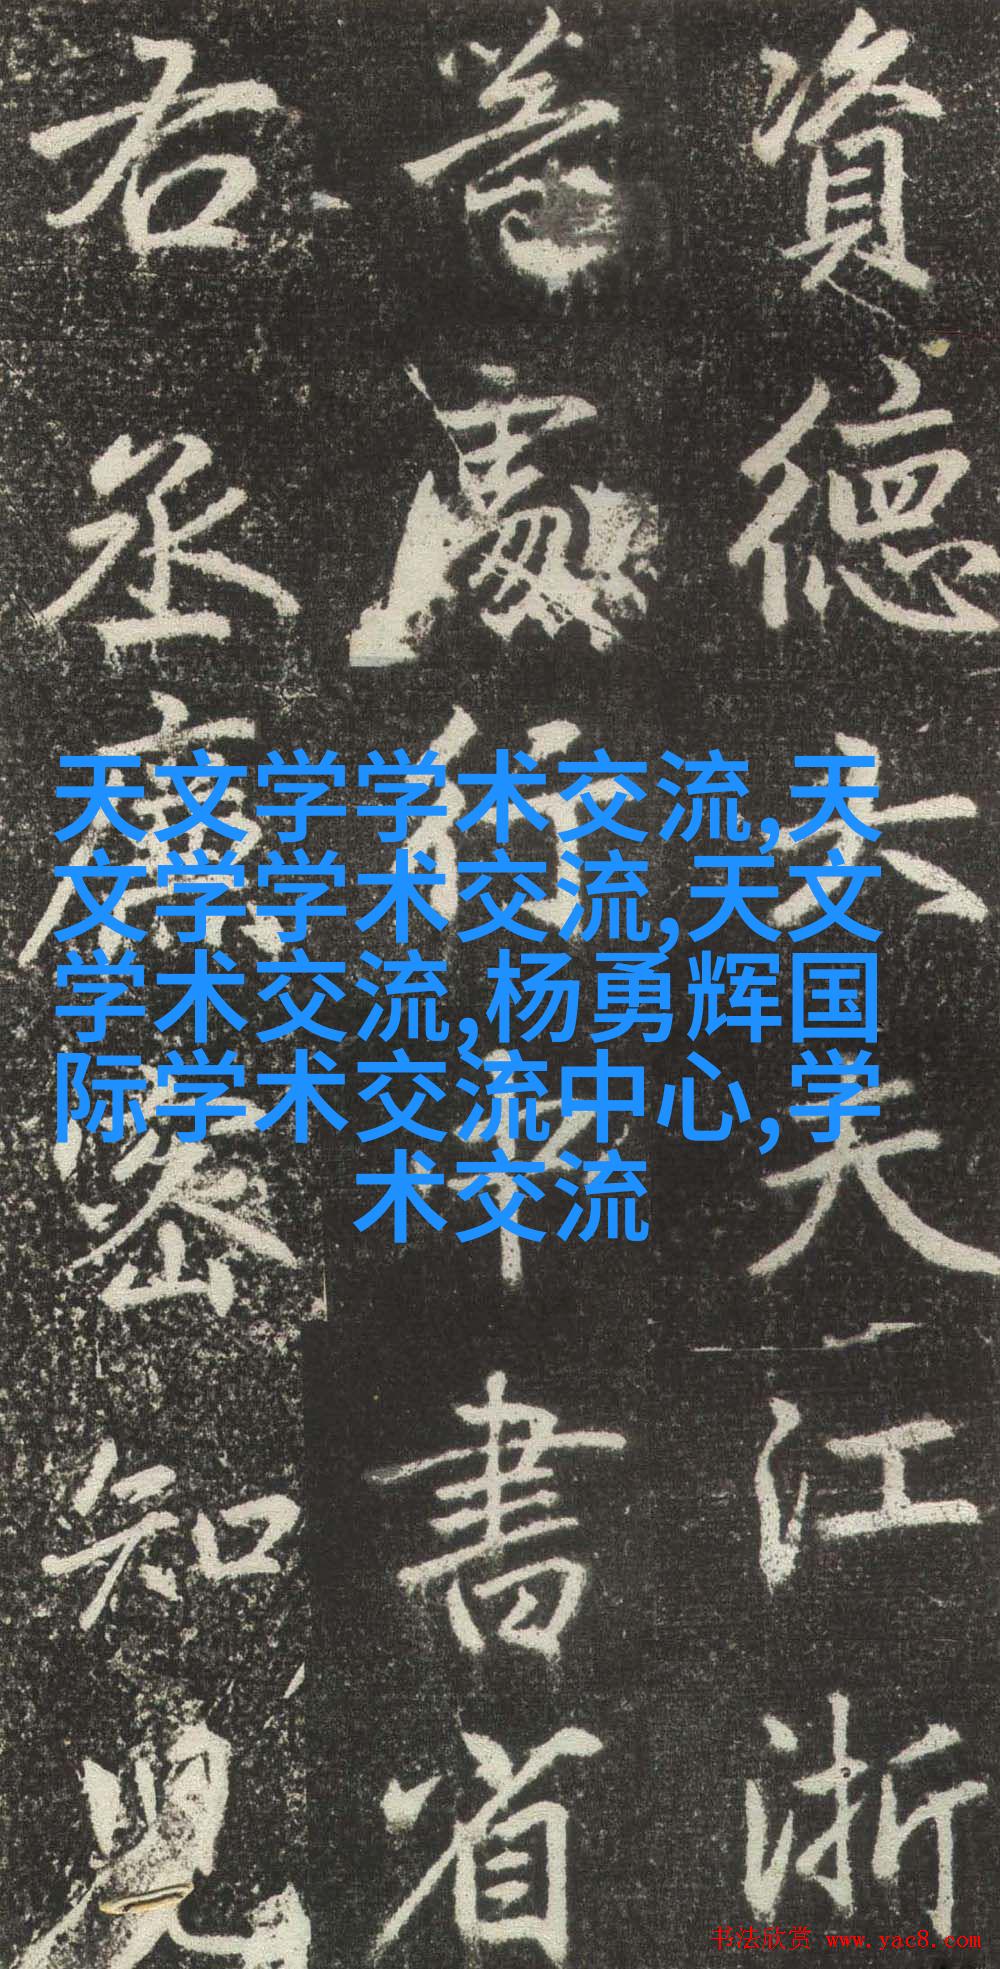 資德大夫江浙
等處行中書省
右丞廉密知兒
天文学学术交流,天
文学学术交流,天文
学术交流,杨勇辉国
际学术交流中心,学
术交流
书法欣赏 www.yac8.com